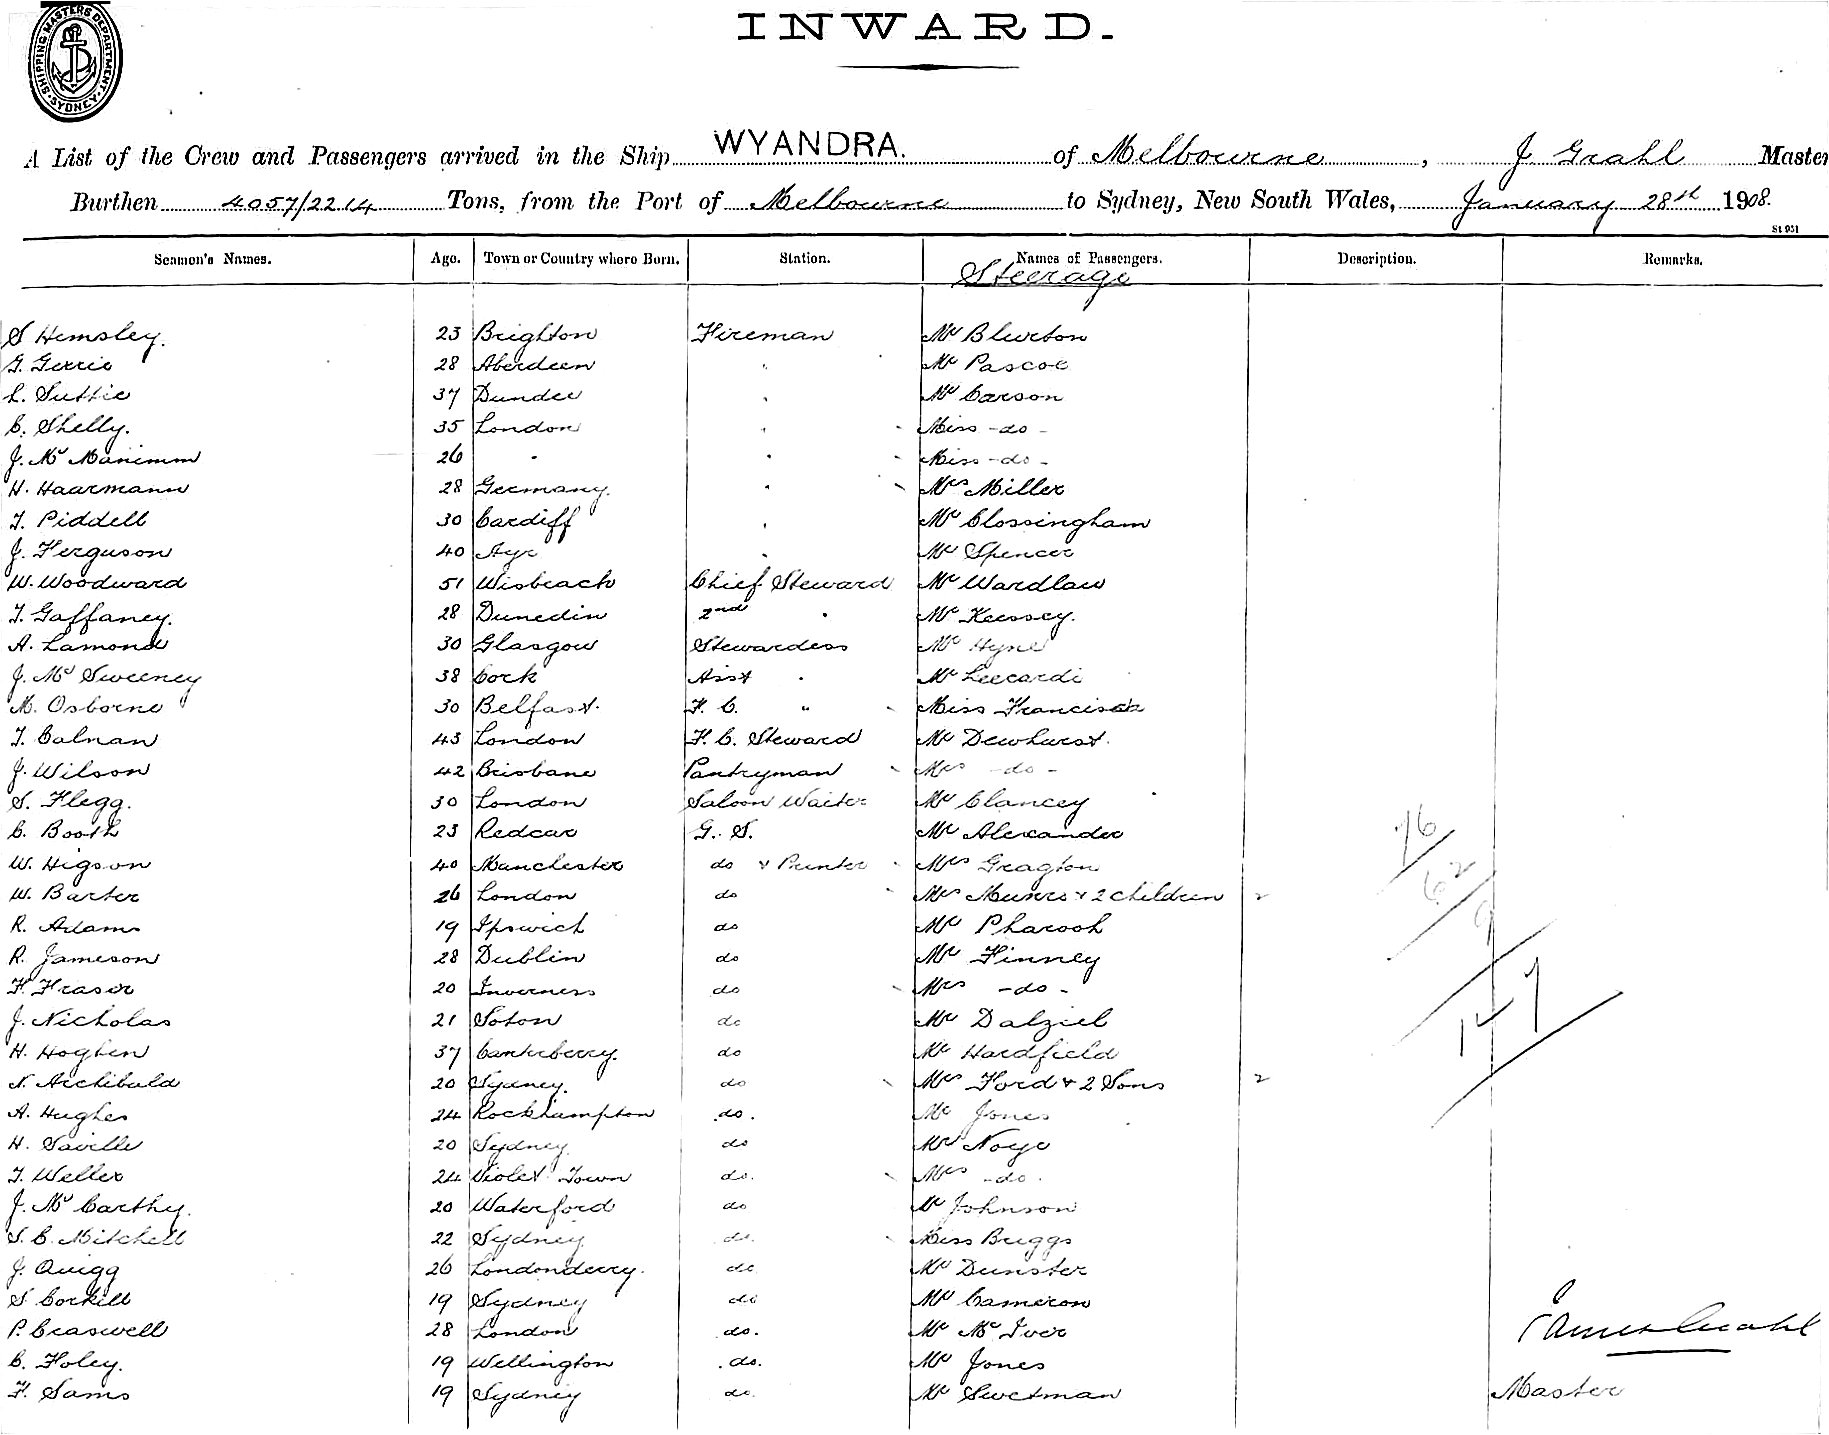 SHIPPING MASTERS DEPARTMENT. SYDNEY.
INWARD.
A List of the Crew and Passengers arrived in the Ship WYANDRA. of Melbourne, J Grahl Master
Burthen 4057/2214 Tons, from the Port of Melbourne to Sydney, New South Wales, January 28th 1908.
St 951
Seamen's Names. Age. Town or Country where Born. Station. Names of Passengers. Description. Remarks.
Steerage
S Hemsley. 23 Brighton Fireman Mr Blurton
G. Gerrie 28 Aberdeen " Mr Pascoe
L. Suttie 37 Dundee " Mr Carson
C. Shelly. 35 London " Miss -do-
J. Mc Manimm 26 " " Miss -do-
H. Haarmann 28 Germany. " Mrs Miller
T. Piddell 30 Cardiff " Mr Clossingham
J. Ferguson 40 Ayr " Mr Spencer
W. Woodward 51 Wisbeach Chief Steward Mr Wardlaw
T. Gaffaney. 28 Dunedin 2nd " Mr Keessey.
A. Lamond 30 Glasgow Stewardess Mr Hyne
J. Mc Sweeney 38 Cork Asst " Mr Leecardi
M. Osborne 30 Belfast. F. C. " Miss
T. Calnan 43 London F. C. Steward Mr Dewhurst.
J. Wilson 42 Brisbane Pantryman Mrs -do-
S. Flegg. 30 London Saloon Waiter Mr Clancey
C. Booth 23 Redcar G. S. Mr Alexander
W. Higson 40 Manchester do & Printer Mrs Gragton
W. Barter 26 London do Mrs Munro & 2 children 2
R. Adams 19 Ipswich do Mr Pharooh
R. Jameson 28 Dublin do Mr Finney
F. Fraser 20 Inverness do Mrs -do-
J. Nicholas 21 Soton do Mr Dalziel
H. Hogben 37 Canterberry. do Mr Hardfield
N. Archibald 20 Sydney. do Mrs Ford & 2 Sons 2
A. Hughes 24 Rockhampton do. Mr Jones
H. Saville 20 Sydney. do Mr Noye
T. Weller 24 Violet Town do. Mrs -do.
J. Mc Carthy. 20 Waterford do Mr Johnson
S. C. Mitchell 22 Sydney do. Miss Briggs
J. Quigg 26 Londonderry. do Mr Dunster
S Corkill 19 Sydney do Mr Cameron
P. Craswell 28 London do. Mr Mc Iver
C. Foley. 19 Wellington do. Mr Jones
F. Sams 19 Sydney do. Mr Swetman
76
62
9
147
James Grahl
Master